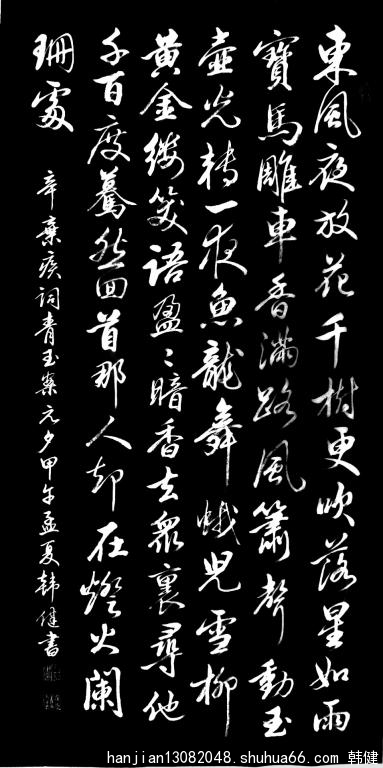 東風夜放花千樹更吹落星如雨
寶馬雕車香滿路風簫聲動玉
壺光轉一夜魚龍舞蛾兒雪柳
黃金縷笑語盈〻暗香去眾裏尋他
千百度驀然回首那人却在燈火闌
珊處
辛棄疾詞青玉案元夕甲午孟夏韓健書
hanjian13082048.shuhua66.com 韩健